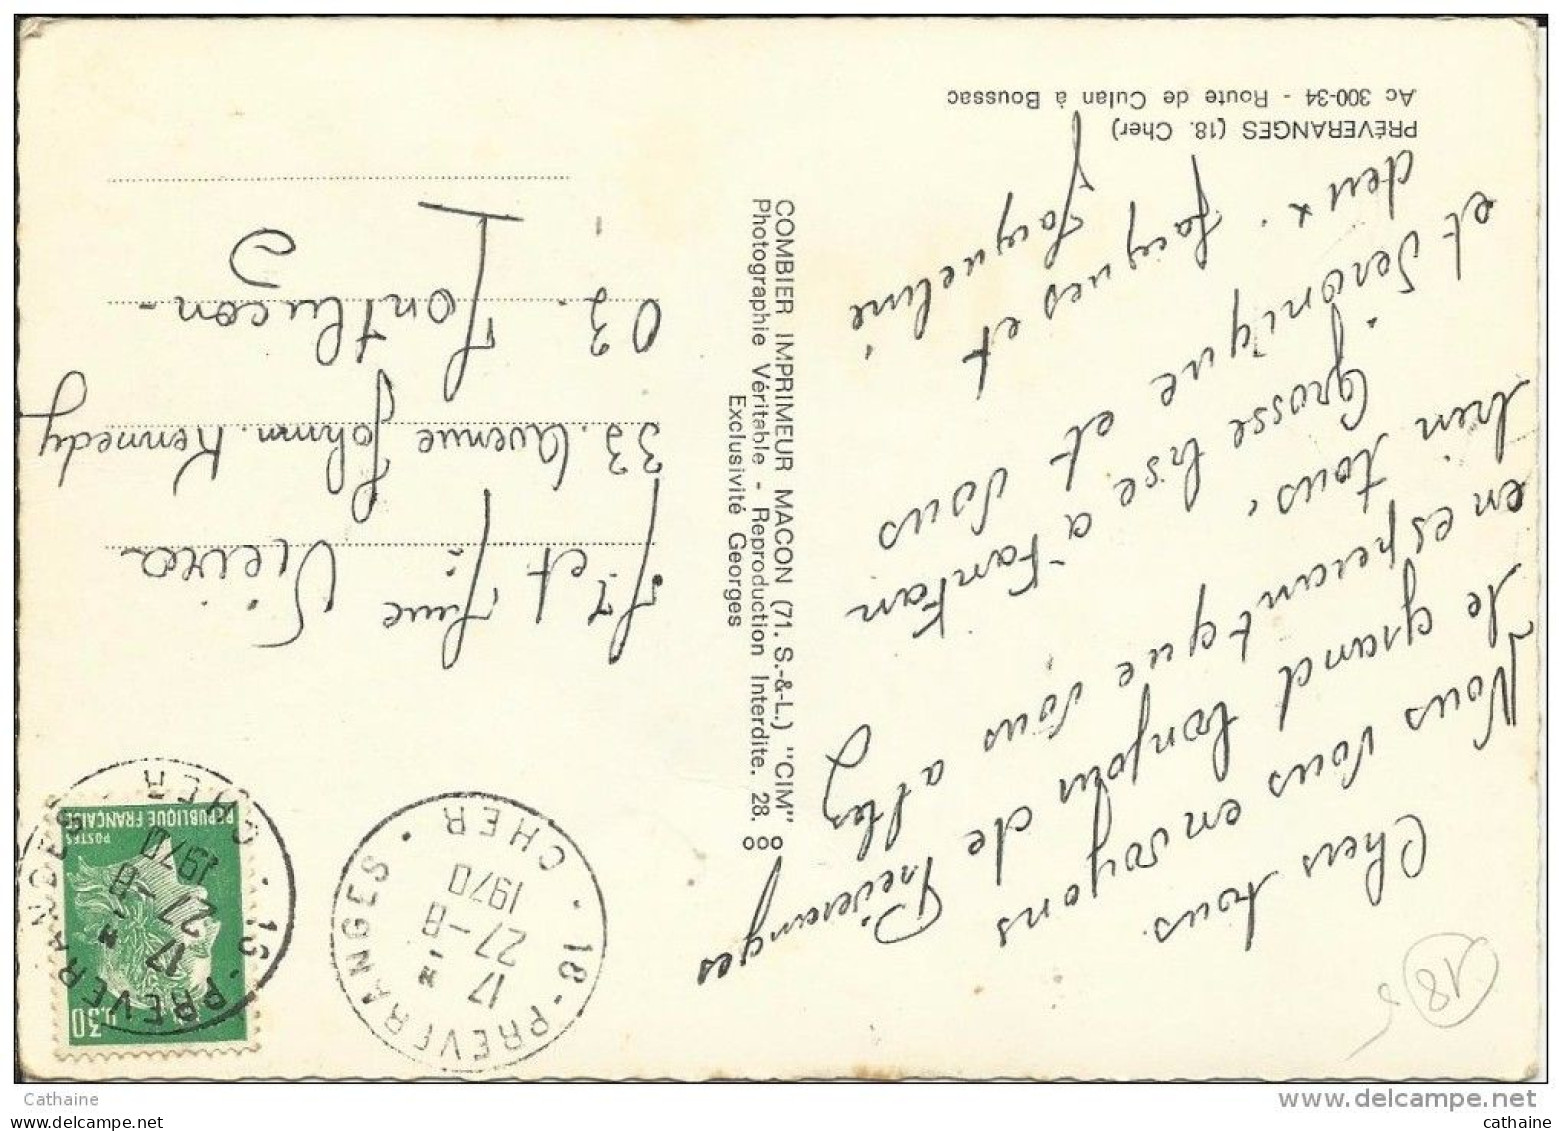 PRÉVERANGES (18. Cher)
Ac 300-34 - Route de Culan à Boussac
Chers tous.
Nous vous envoyons
le grand bonjour de Préveranges
en espérant que vous allez
bien tous, Grosse bise a Fanfan
et Véronique et vous
deux. Jacques et
Jacqueline
COMBIER IMPRIMEUR MACON (71. S.-&-L.) "CIM"
Photographie Véritable - Reproduction Interdite. 28.
Exclusivité Georges
18 - PREVERANGES
CHER
17 H
27-8
1970
RÉPUBLIQUE FRANÇAISE
POSTES
0.30
18. PREVERANGES
CHER
17 H
27-8
1970
Mr et Mme Vieira
33. Avenue Johnn. Kennedy
03. Montlucon-
18
Cathaine
cathaine
delcampe.net